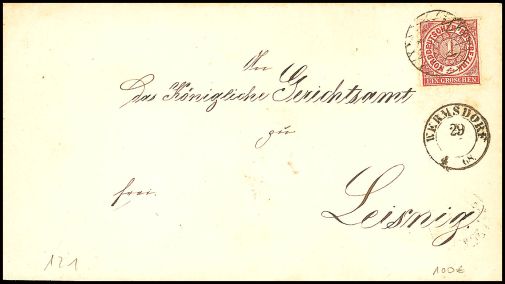 NORDDEUTSCHER POSTBEZIRK
1
EIN GROSCHEN
An
Das Königliche Gerichtsamt
zu
HERMSDORF
29
4 68
frei.
Leisnig.
121
100€